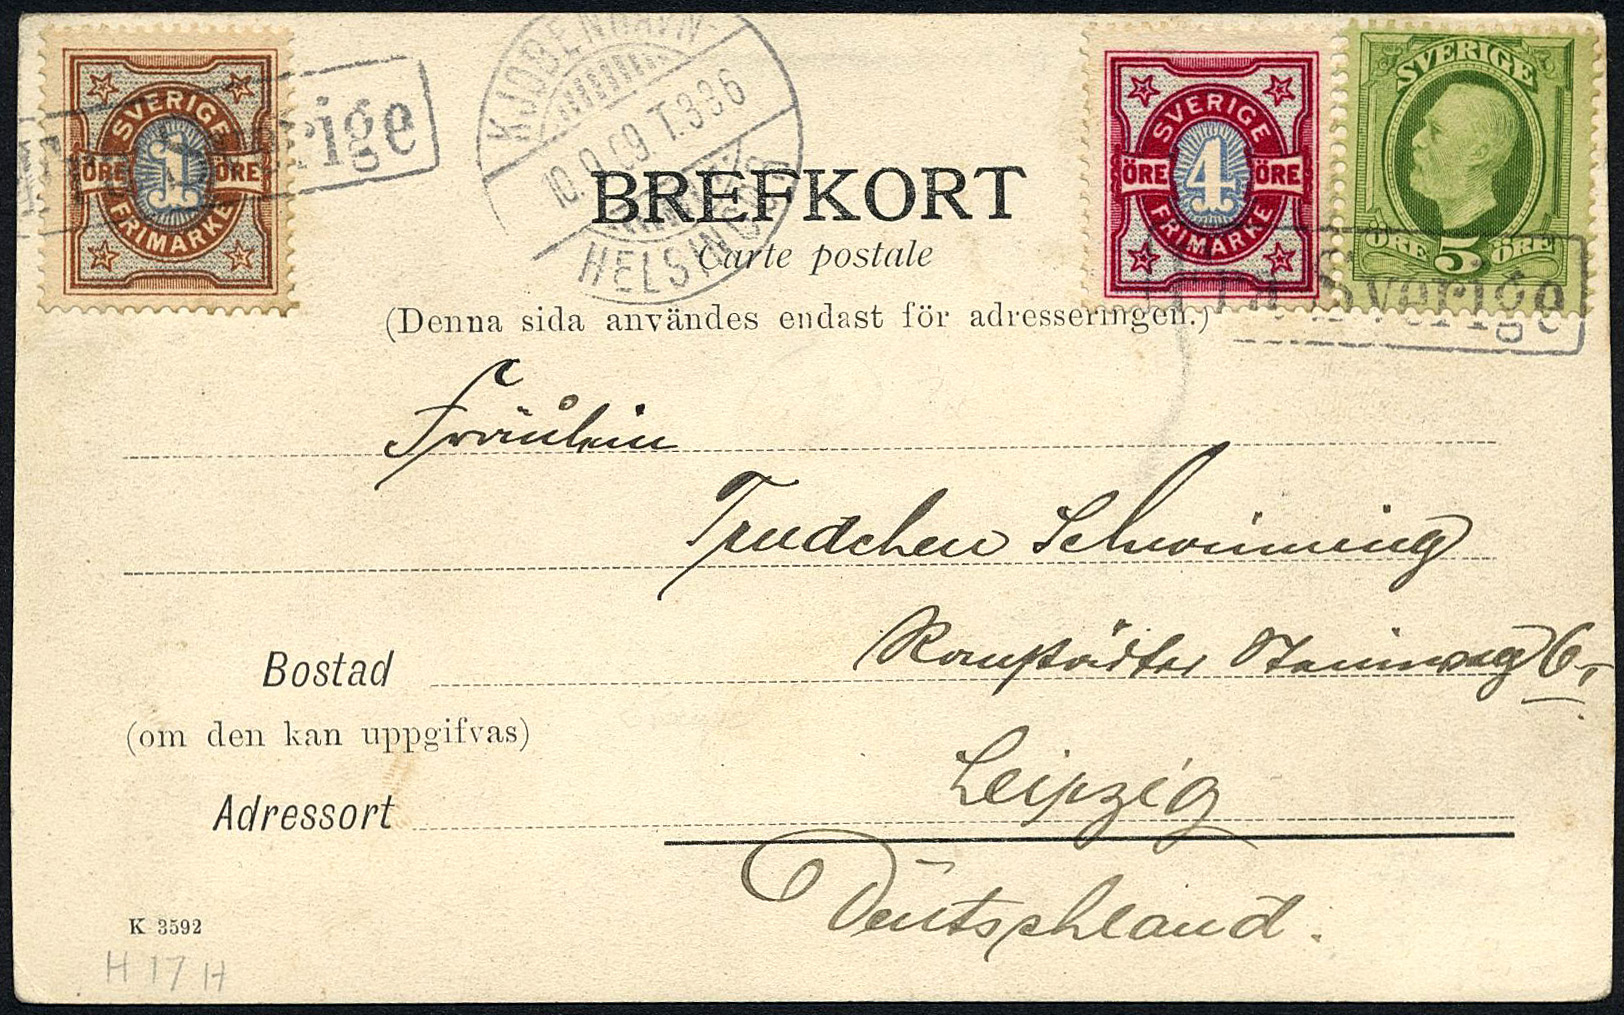 SVERIGE
1
ÖRE ÖRE
FRIMÄRKE
Sverige
KJØBENHAVN-
10.9.09 T.336
HELSINGØR
SVERIGE
4
ÖRE ÖRE
FRIMÄRKE
SVERIGE
ÖRE 5 ÖRE
Fra Sverige
BREFKORT
Carte postale
(Denna sida användes endast för adresseringen.)
Fräulein
Trudchen Schwinning
Ranstädter Steinweg 6.
Bostad
(om den kan uppgifvas)
Leipzig
Adressort
Deutschland.
K 3592
H 17 H